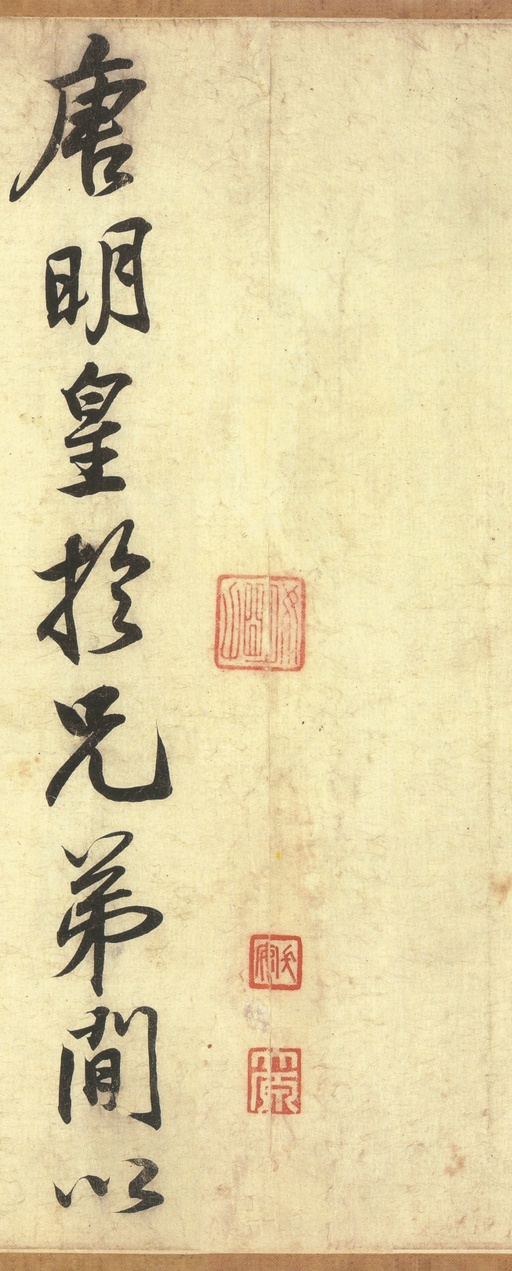 唐明皇於兄弟間以